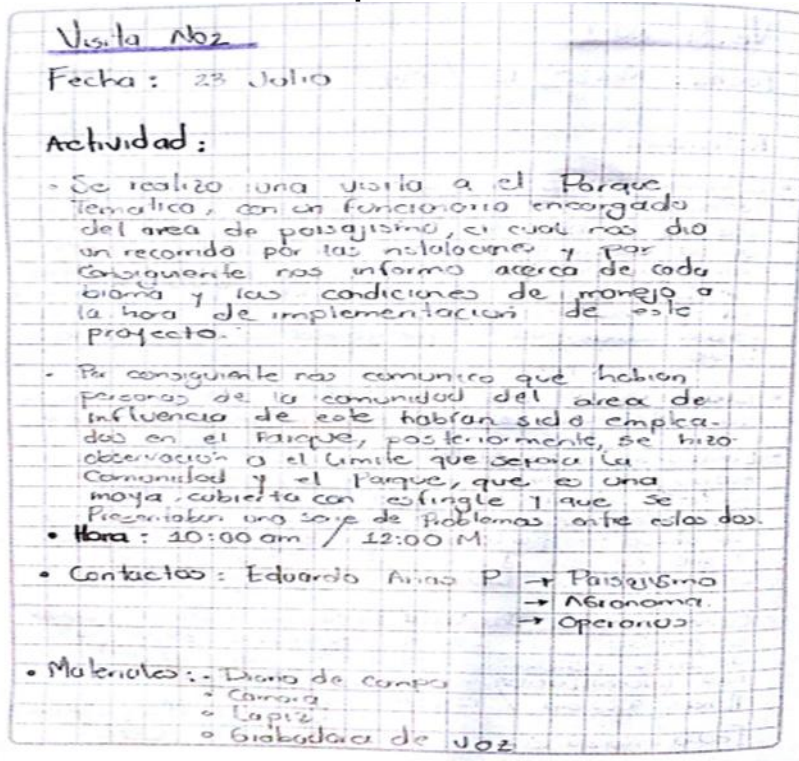 Visita No2
Fecha: 23 Julio
Actividad:
- Se realizo una visita a el Parque
Tematico, con un funcionario encargado
del area de paisajismo, el cual nos dio
un recorrido por las instalaciones y por
consiguiente nos informo acerca de cada
bioma y las condiciones de manejo a
la hora de implementacion de este
proyecto.
- Por consiguiente nos comunico que habian
personas de la comunidad del area de
influencia de este habian sido emplea-
das en el Parque, posteriormente, se hizo
observacion a el limite que separa la
Comunidad y el Parque, que es una
maya cubierta con y que se
Presentaban una serie de Problemas entre estos dos.
• Hora: 10:00 am / 12:00 M
• Contactos: Eduardo Arias P → Paisajismo
→ Agronoma
→ Operarios
• Materiales: - Diario de campo
• Camara
• Lapiz
• Grabadora de voz